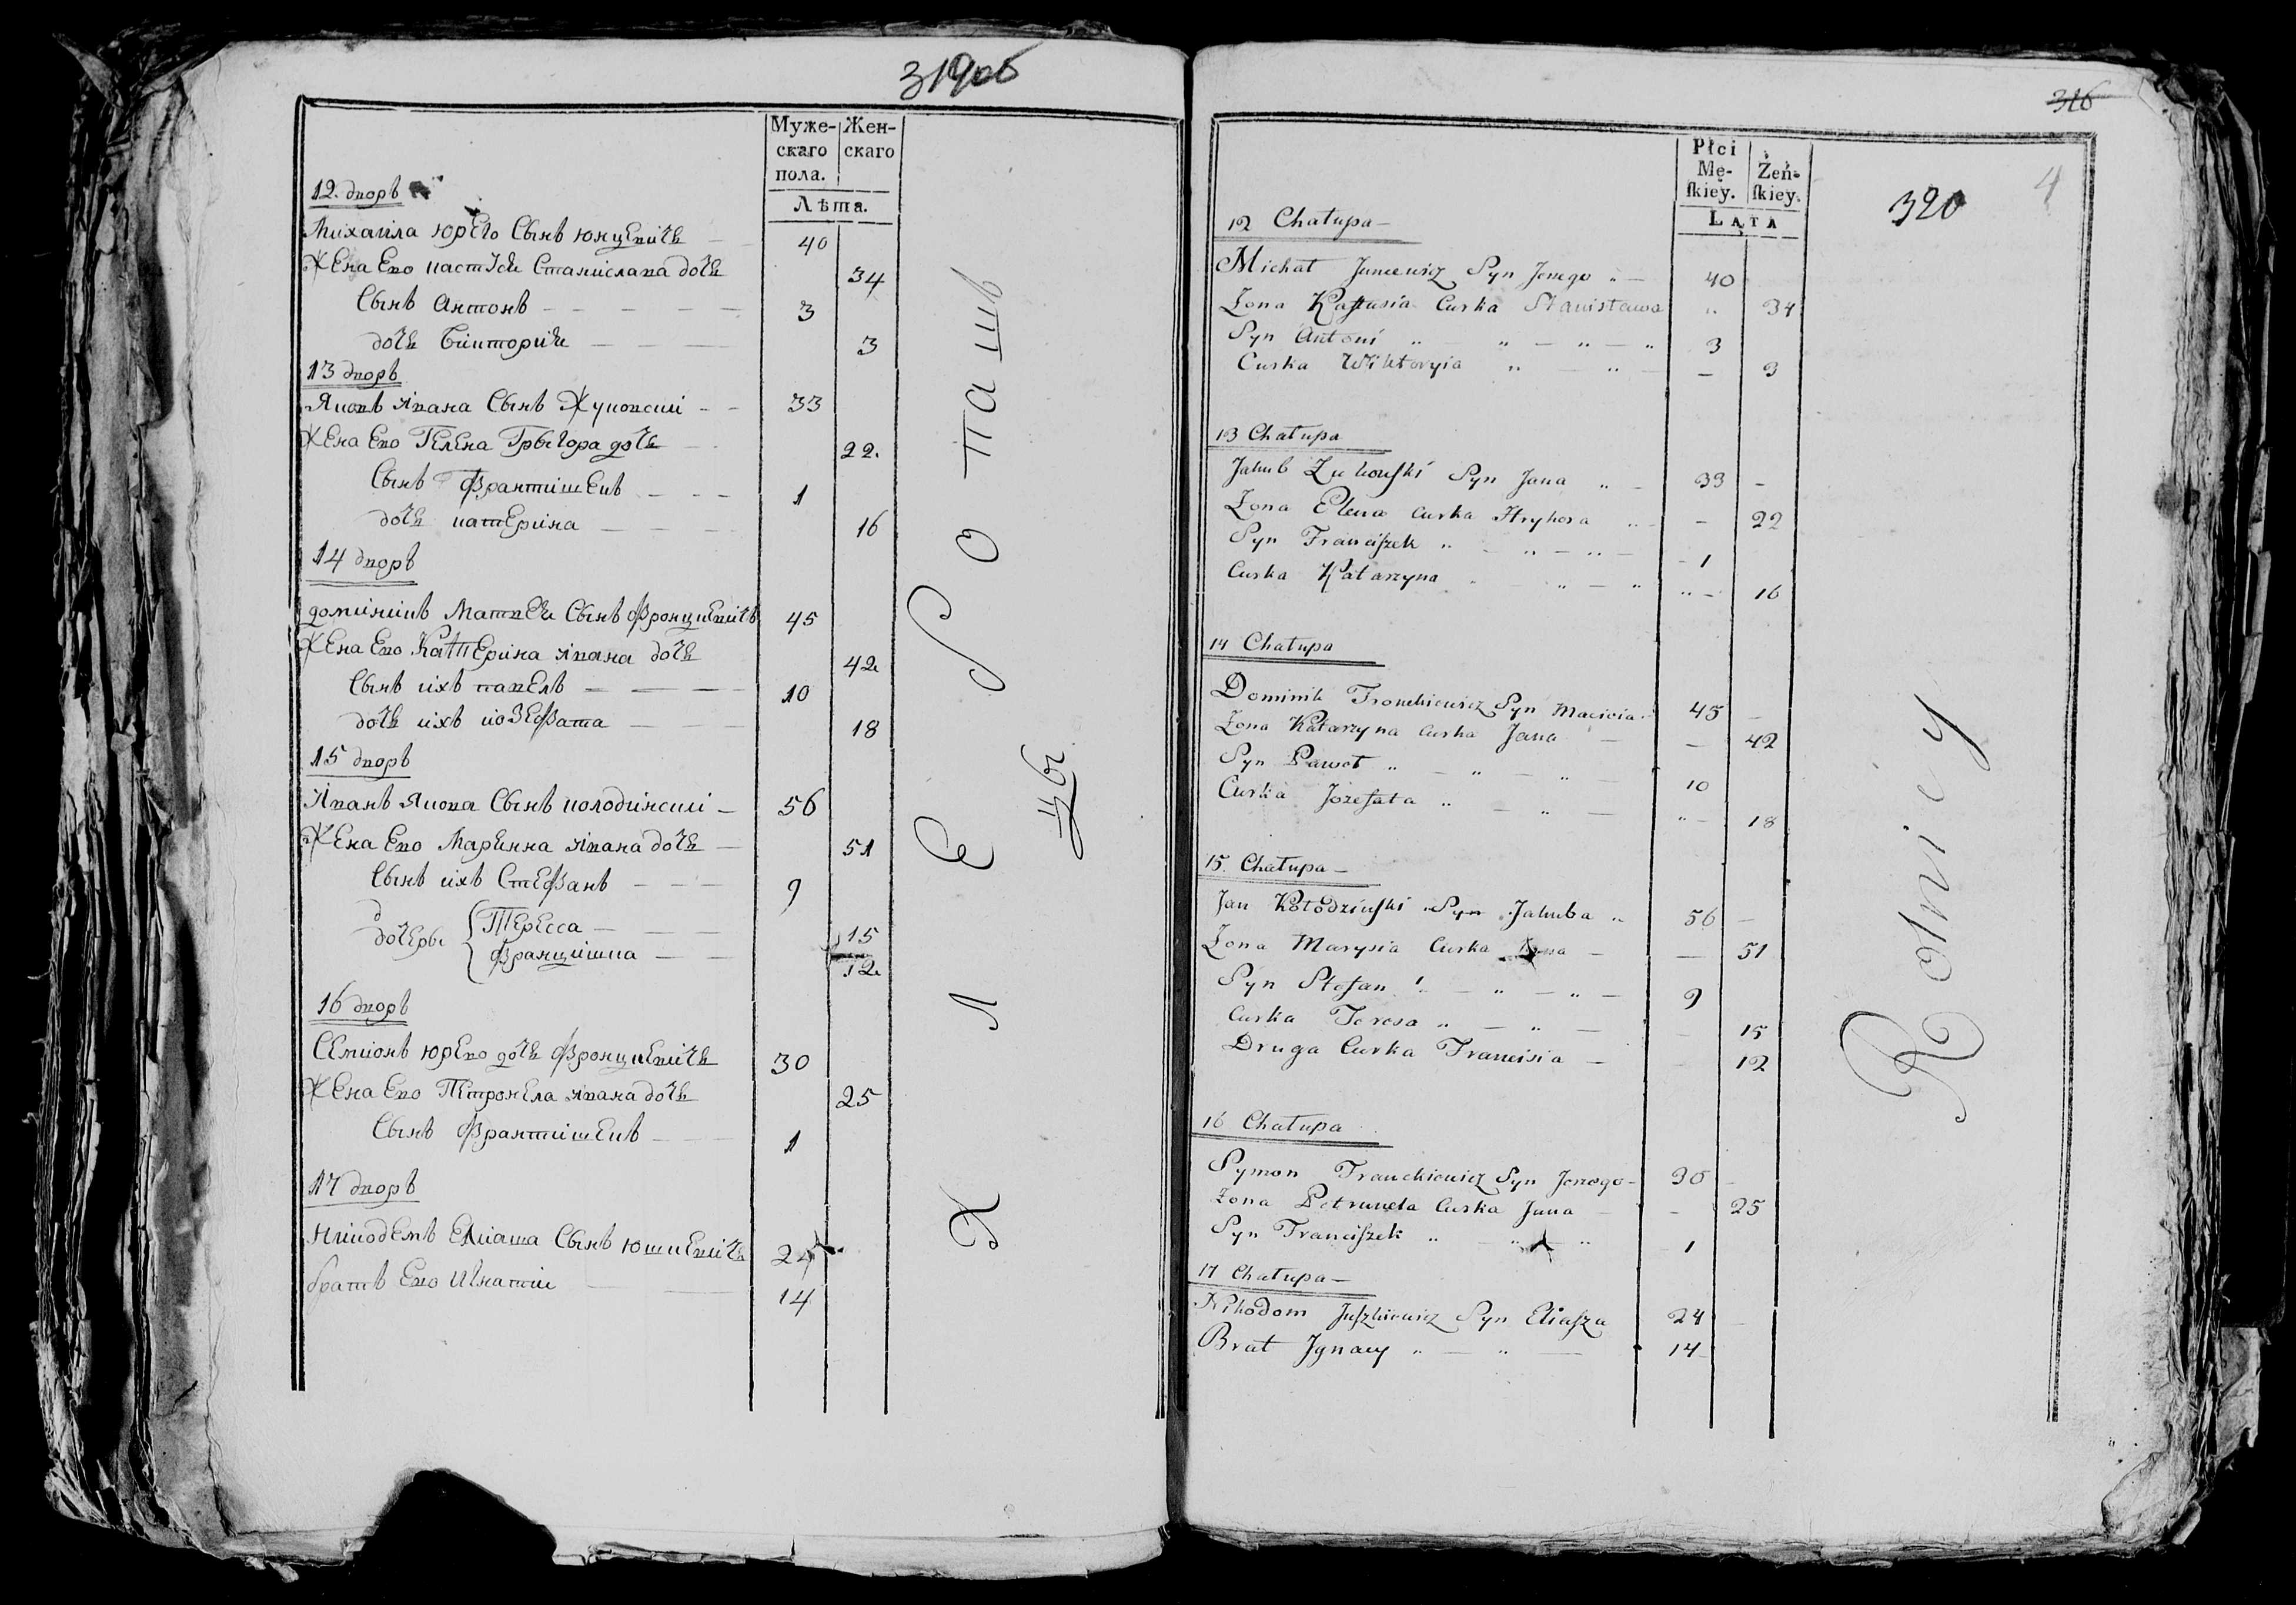 319об
Муже-
скаго
пола.
Жен-
скаго
Лѣта.
12. дворъ
Михаила юрего Сынъ юнцевичь 40
Жена Ево кастусь Станіслава дочь 34
Сынъ Антонъ 3
дочь Викторія 3
13 дворъ
Яковъ івана Сынъ Жуковскі 33
Жена Ево Гелена Грыгора дочь 22.
Сынъ Франтішекъ 1
дочь катеріна 16
14 дворъ
домінікъ Матвея Сынъ Фронцкевичь 45
Жена Ево Катеріна івана дочь 42
Сынъ ихъ павелъ 10
дочь ихъ иозефата 18
15 дворъ
Іванъ Якова Сынъ колодінскі 56
Жена Ево Марянна івана дочь 51
Сынъ ихъ Стефанъ 9
дочеры Тересса 15
Францішка 12
16 дворъ
Семіонъ юрево дочь Фронцкевичь 30
Жена Ево Петронела івана дочь 25
Сынъ Франтішекъ 1
17 дворъ
Никодемъ Еліаша Сынъ юшкевичь 24
братъ Ево Игнатіи 14
Хлеборопашъ
цы
316
320
4
Płci
Mę-
ſkiey.
Żeń-
ſkiey.
LATA
12 Chałupa
Michał Juncewicz Syn Jerzego 40
Żona Kastusia Curka Stanisława 34
Syn Antoni 3
Curka Wiktoryia 3
13 Chałupa
Jakub Żukowſki Syn Jana 33
Żona Elena Curka Hryhora 22
Syn Franciſzek 1
Curka Katarzyna 16
14 Chałupa
Dominik Fronckiewicz Syn Macieia 45
Żona Katarzyna Curka Jana 42
Syn Paweł 10
Curka Jozefata 18
15. Chałupa
Jan Kołodzinſki Syn Jakuba 56
Żona Marysia Curka Jana 51
Syn Stefan 9
Curka Teresa 15
Druga Curka Francisia 12
16 Chałupa
Symon Franckiewicz Syn Jerzego 30
Żona Petrunela Curka Jana 25
Syn Franciſzek 1
17 Chałupa
Nikodom Juſzkiewicz Syn Eliaſza 24
Brat Jgnacy 14
Rolniey